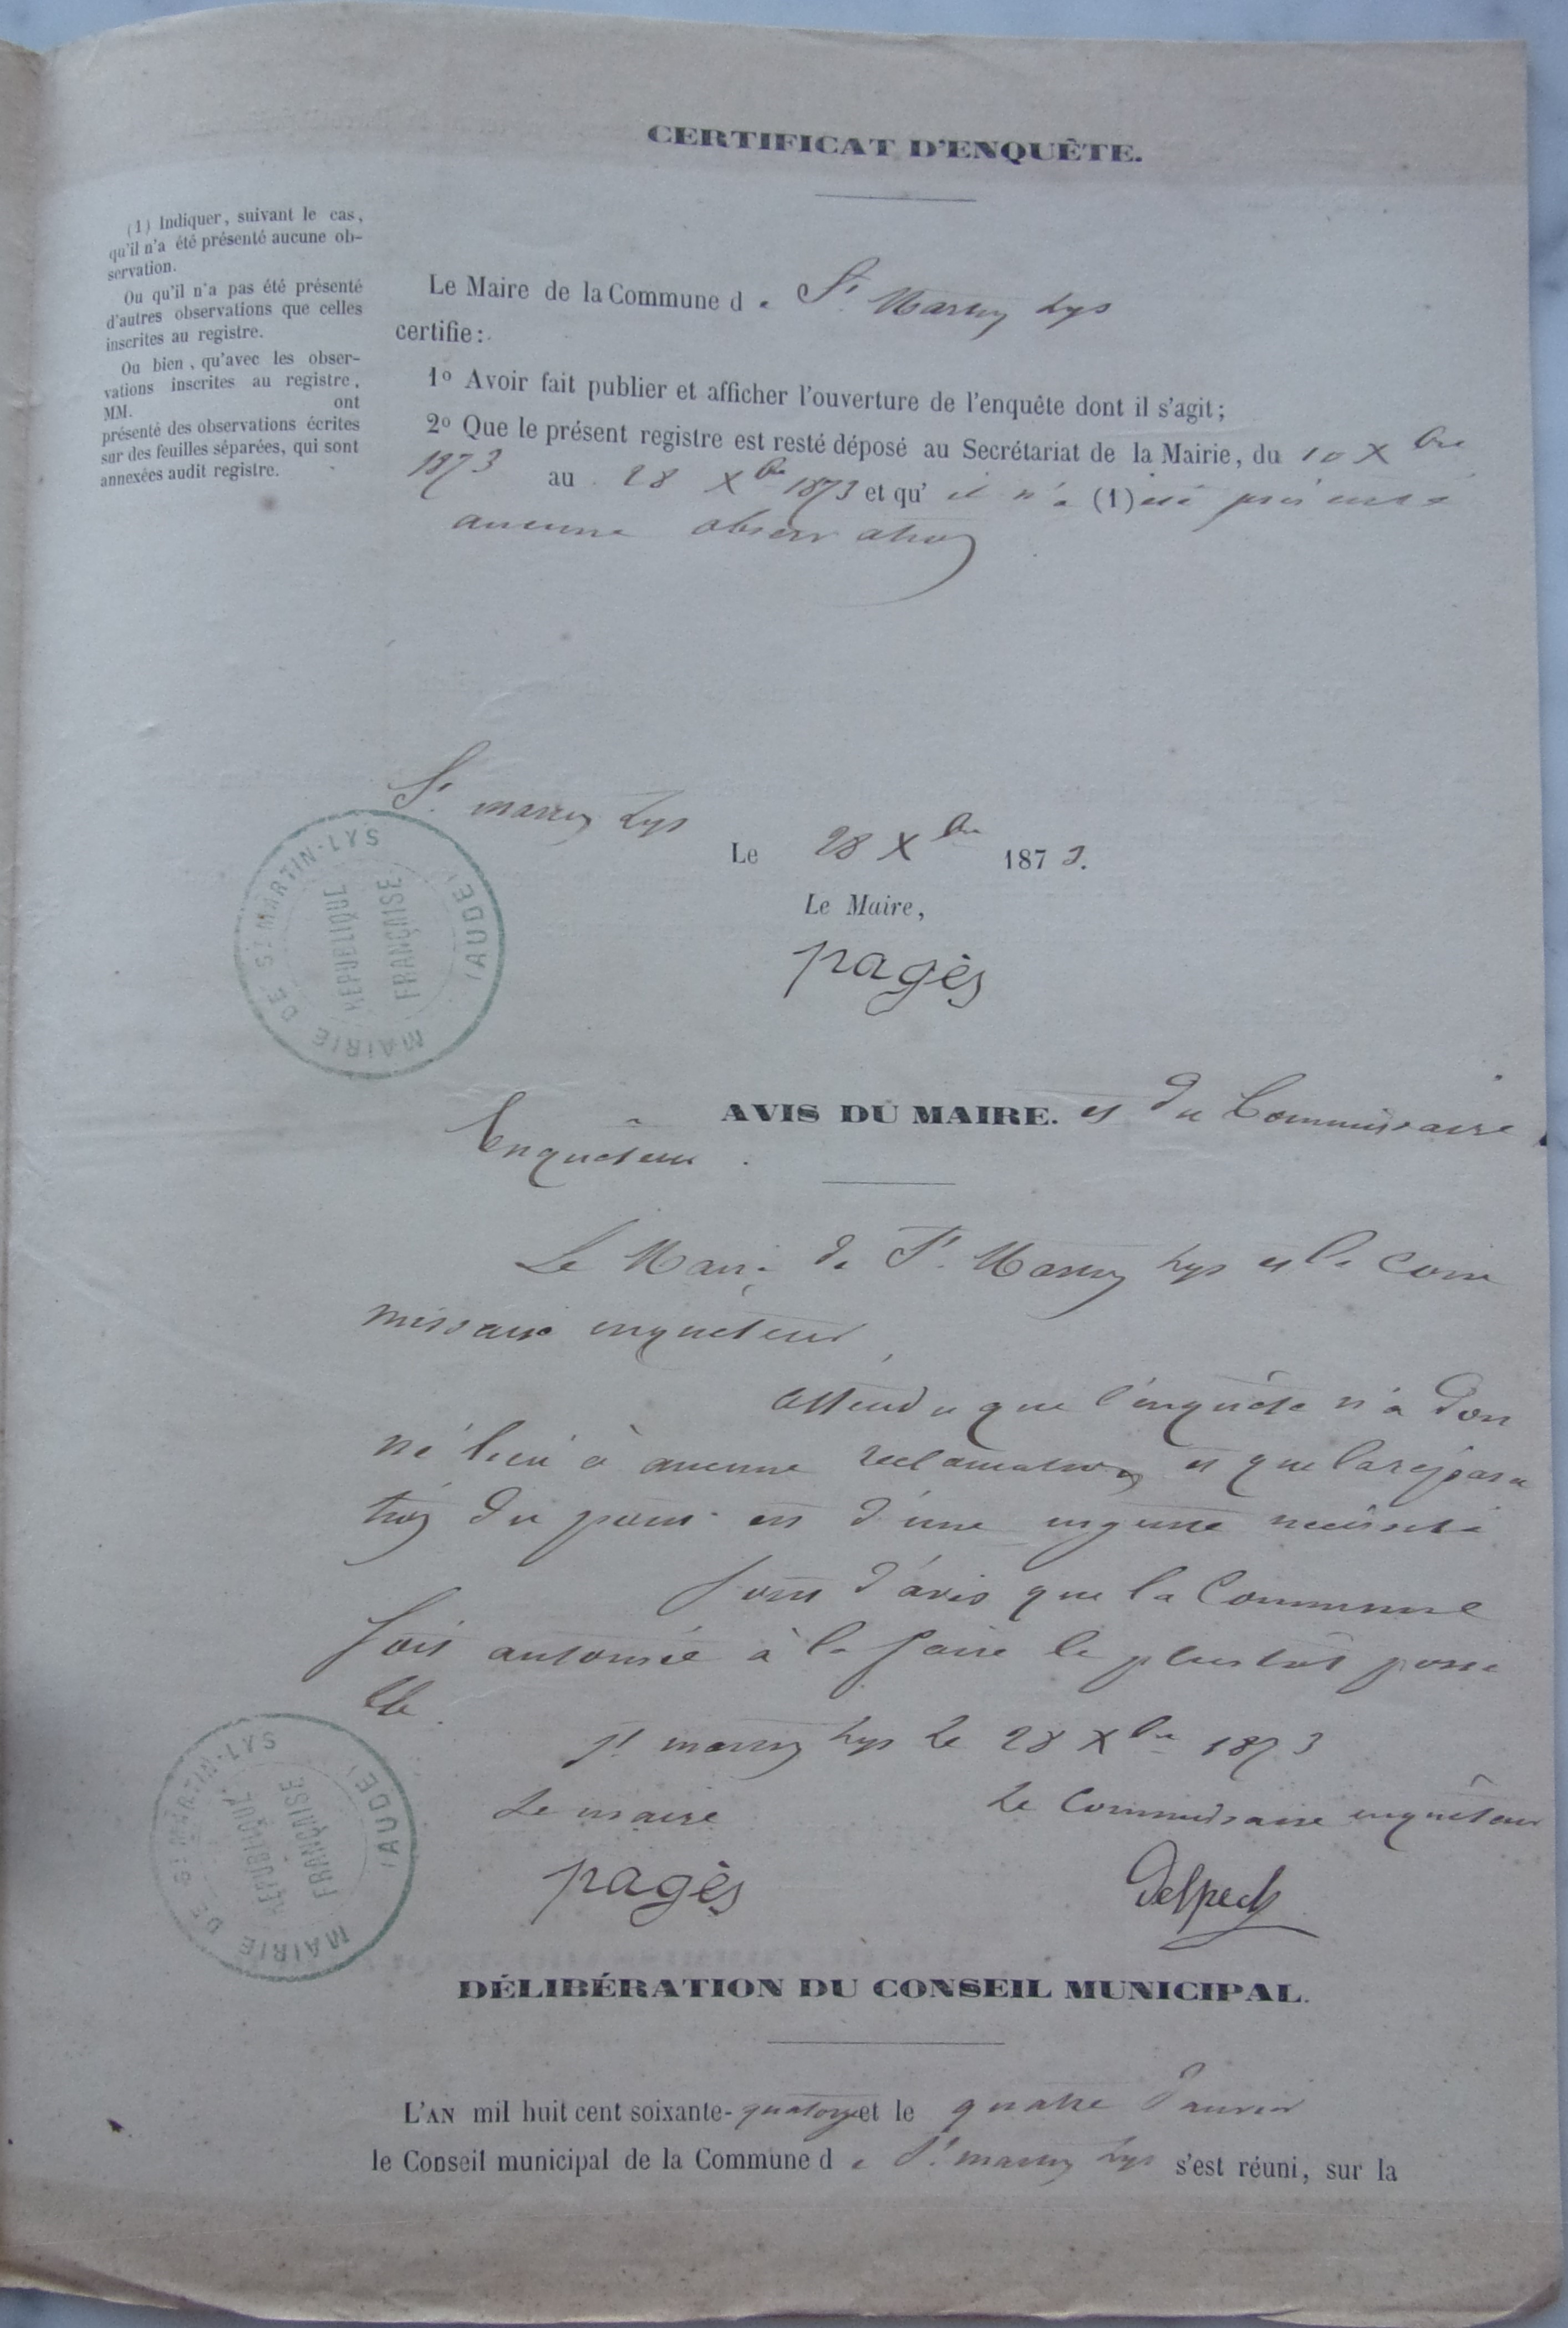 CERTIFICAT D'ENQUÊTE.
(1) Indiquer, suivant le cas,
qu'il n'a été présenté aucune ob-
servation.
Ou qu'il n'a pas été présenté
d'autres observations que celles
inscrites au registre.
Ou bien, qu'avec les obser-
vations inscrites au registre,
MM. ont
présenté des observations écrites
sur des feuilles séparées, qui sont
annexées audit registre.
Le Maire de la Commune de St Martin Lys
certifie :
1o Avoir fait publier et afficher l'ouverture de l'enquête dont il s'agit;
2o Que le présent registre est resté déposé au Secrétariat de la Mairie, du 10 Xbre
1873 au 28 Xbre 1873 et qu'il n'a (1) été présenté
aucune observation
St martin Lys
Le 28 Xbre 1873.
Le Maire,
pagès
MAIRIE DE ST MARTIN-LYS (AUDE)
RÉPUBLIQUE FRANÇAISE
AVIS DU MAIRE. et du Commissaire
Enquêteur.
Le Maire de St Martin Lys et le com
missaire enquêteur,
attendu que l'enquête n'a don
né lieu à aucune réclamation et que la répara
tion du pont est d'une urgente nécessité
sont d'avis que la Commune
soit autorisée à la faire le plustôt possi
ble.
St martin Lys le 28 Xbre 1873
Le maire Le Commissaire enquêteur
pagès Delpech
MAIRIE DE ST MARTIN-LYS (AUDE)
RÉPUBLIQUE FRANÇAISE
DÉLIBÉRATION DU CONSEIL MUNICIPAL.
L'AN mil huit cent soixante-quatorze et le quatre Janvier
le Conseil municipal de la Commune de St martin Lys s'est réuni, sur la